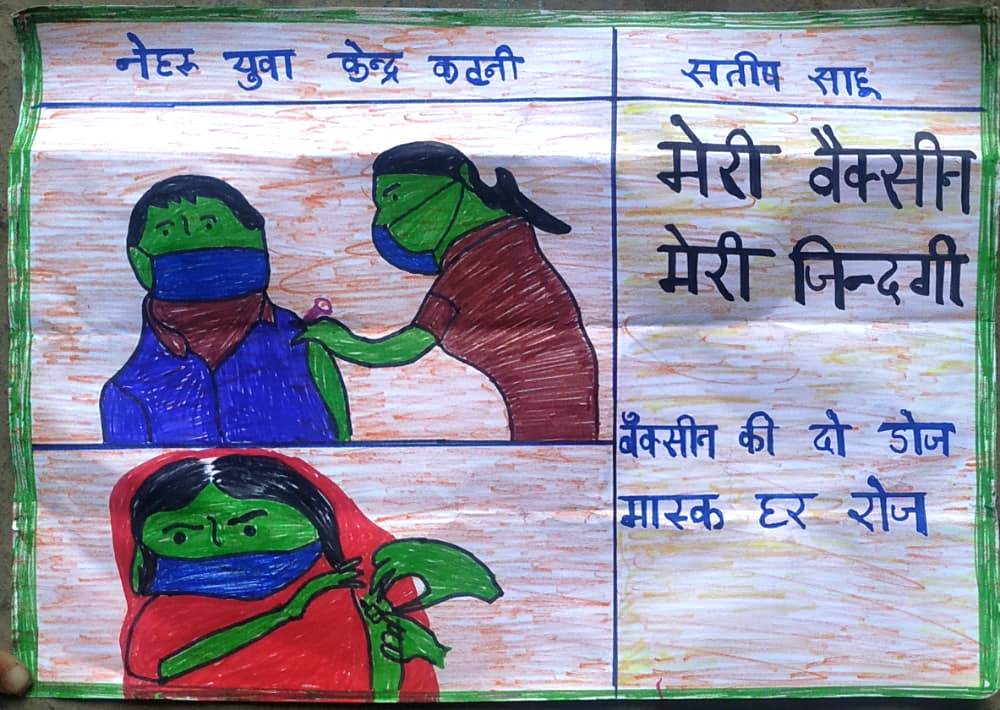 नेहरु युवा केन्द्र कटनी
सतीष साहू
मेरी वैक्सीन
मेरी जिन्दगी
वैक्सीन की दो डोज
मास्क हर रोज